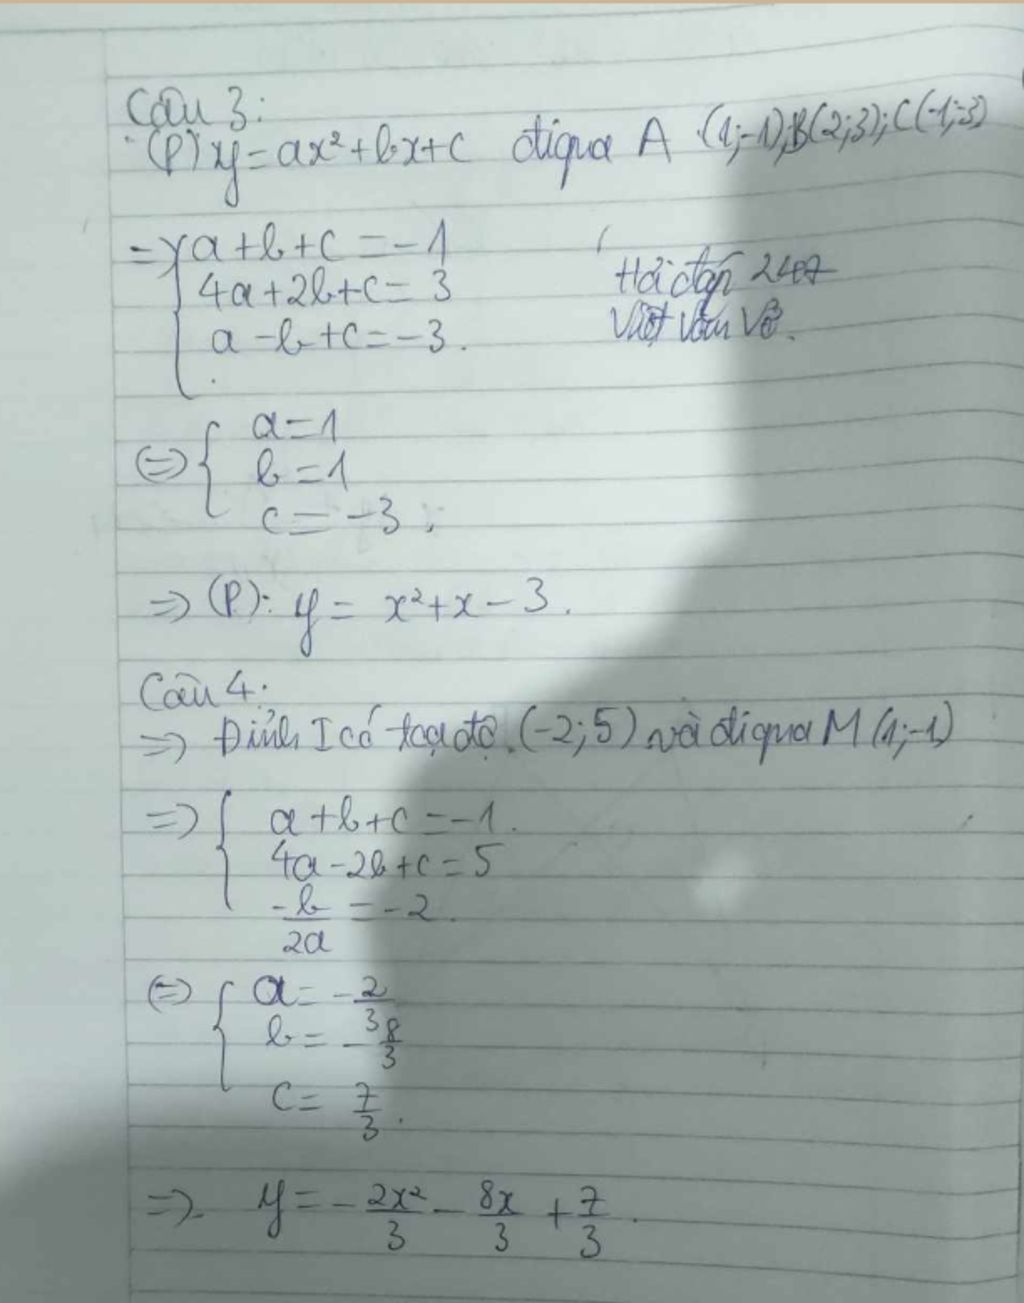 Câu 3:
(P) y = ax² + bx + c đi qua A (1;-1); B(2;3); C(-1;-3)
=> { a + b + c = -1
4a + 2b + c = 3
a - b + c = -3.
Hỏi đáp 247
Viết Văn Vở.
<=> { a = 1
b = 1
c = -3.
=> (P): y = x² + x - 3.
Câu 4:
=> Đỉnh I có toạ độ (-2;5) và đi qua M (1;-1)
=> { a + b + c = -1.
4a - 2b + c = 5
-b/2a = -2.
<=> { a = -2/3
b = -8/3
c = 7/3.
=> y = -2x²/3 - 8x/3 + 7/3.